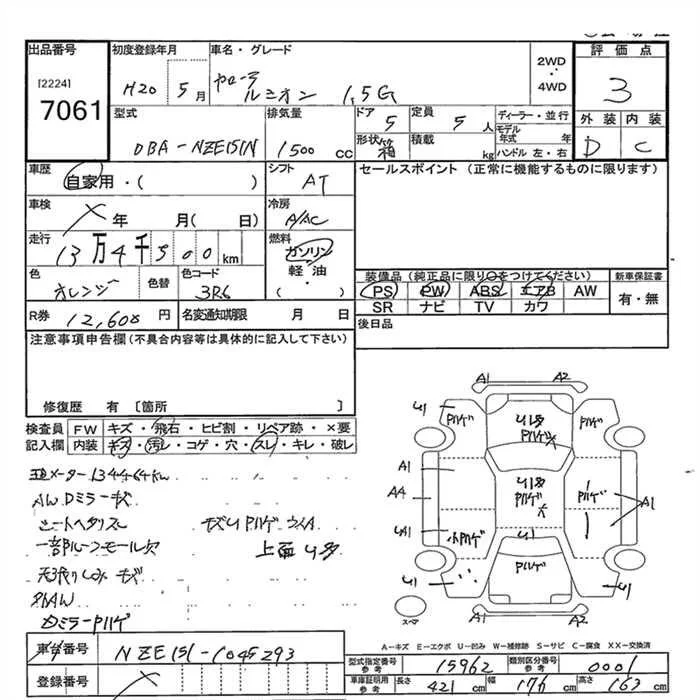 出品番号
[2224]
7061
初度登録年月
H20 5月
車名・グレード
カローラ
ルミオン 1.5G
2WD
・
4WD
評価点
3
外装 内装
D C
型式
DBA-NZE151N
排気量
1500 cc
ドア 5
定員 5人
ディーラー・並行
モデル年式 年
ハンドル 左・右
形状 箱
積載 kg
車歴
自家用・( )
シフト
AT
セールスポイント (正常に機能するものに限ります)
車検
年 月( 日)
冷房
A/AC
走行
13万4千500km
燃料
ガソリン
軽・油
・( )
色
オレンジ
色替
色コード
3R6
装備品(純正品に限り○をつけてください)
新車保証書
PS PW ABS エアB AW
SR ナビ TV カワ
有・無
R券 12,600円
名変通知期限 月 日
後日品
注意事項申告欄(不具合内容等は具体的に記入して下さい)
修復歴 有 [箇所 ]
検査員記入欄
FW キズ・飛石・ヒビ割・リペア跡・×要
内装 キズ・汚レ・コゲ・穴・スレ・キレ・破レ
メーター134464km
AW Dミラーキズ
シートヘタリスレ
キズU Pハゲ
一部ルーフモール欠
上面U多
天張りシミ キズ
社外AW
Dミラー Pハゲ
A1 A2
U1 Pハゲ
U多
Pハゲ
Pハゲ U1
A1
AA
UA1
U多
Pハゲ
Pハゲ
A1
小Pハゲ
U1
Pハゲ
U1
U1
A1 A2
スペア
A-キズ E-エクボ U-凹み W-補修跡 S-サビ C-腐食 XX-交換済
車台番号
NZE151-1045293
登録番号
型式指定番号 参考
15962
類別区分番号 参考
0001
車庫証明用 参考
長さ 421cm
幅 176cm
高さ 163cm